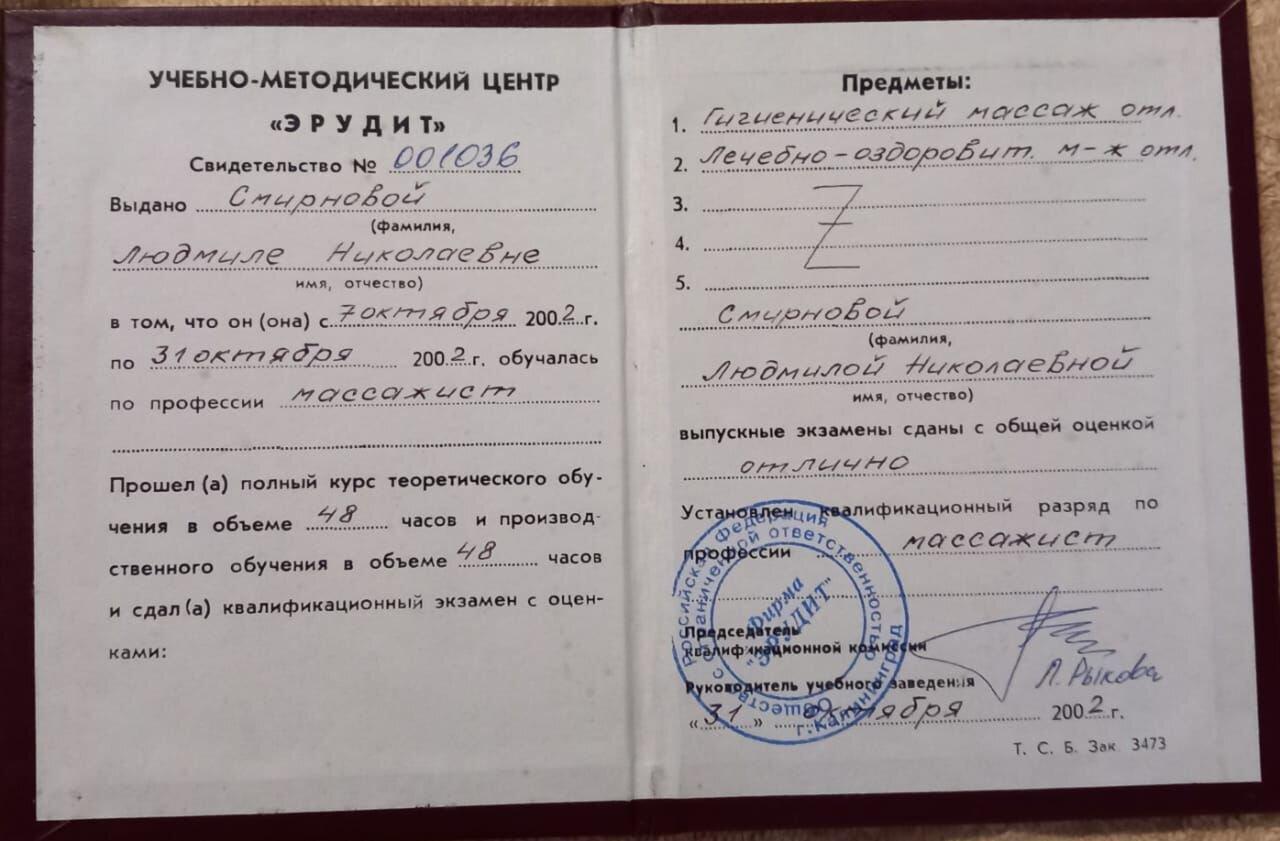 УЧЕБНО-МЕТОДИЧЕСКИЙ ЦЕНТР
«ЭРУДИТ»
Свидетельство № 001036
Выдано Смирновой
(фамилия,
Людмиле Николаевне
имя, отчество)
в том, что он (она) с 7 октября 2002 г.
по 31 октября 2002 г. обучалась
по профессии массажист
Прошел (а) полный курс теоретического обу-
чения в объеме 48 часов и производ-
ственного обучения в объеме 48 часов
и сдал (а) квалификационный экзамен с оцен-
ками:
Предметы:
1. Гигиенический массаж отл.
2. Лечебно-оздоровит. м-ж отл.
3.
4.
5.
Смирновой
(фамилия,
Людмилой Николаевной
имя, отчество)
выпускные экзамены сданы с общей оценкой
отлично
Установлен квалификационный разряд по
профессии массажист
Председатель
квалификационной комиссии
Л. Рыкова
Руководитель учебного заведения
«31» октября 2002 г.
Т. С. Б. Зак. 3473
Российская Федерация
Общество с ограниченной ответственностью
г. Калининград
Фирма
"ЭРУДИТ"